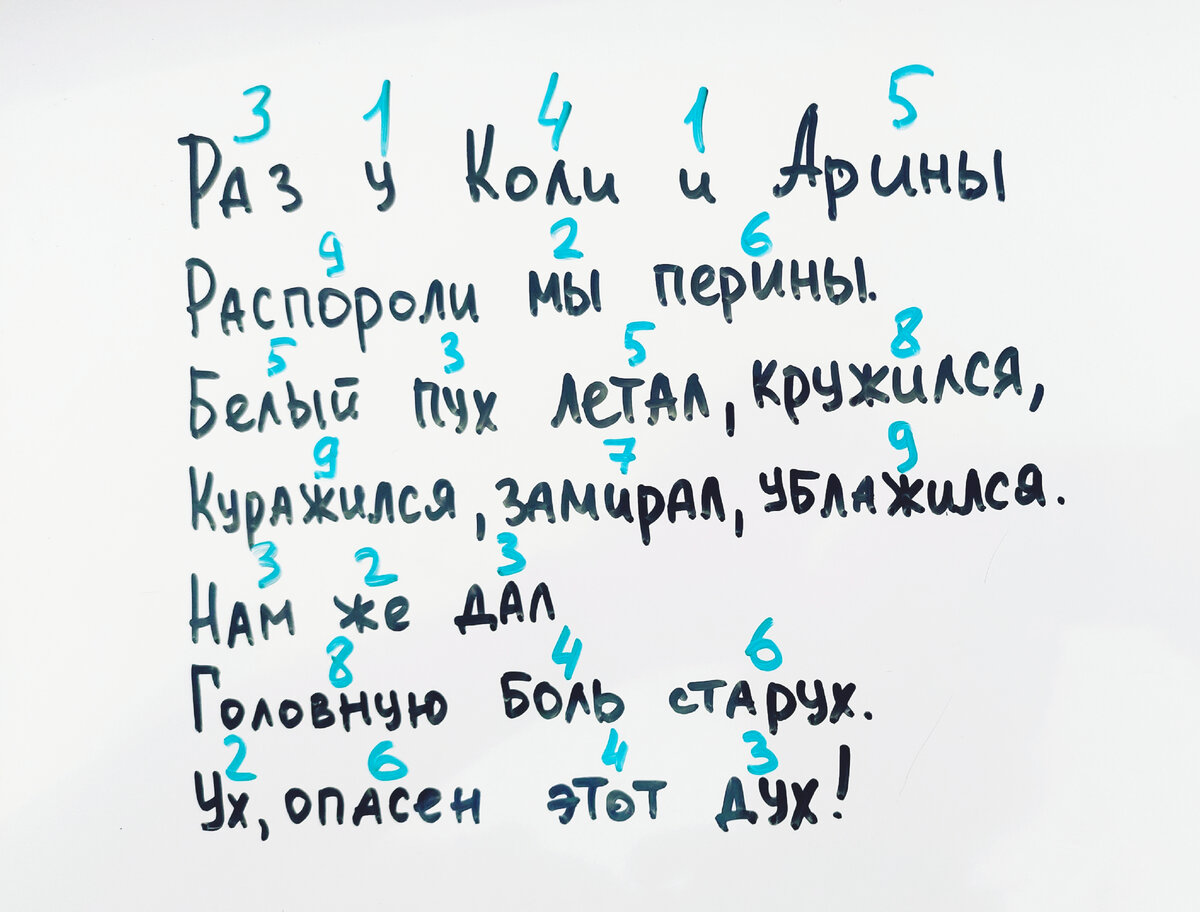 3 1 4 1 5
Раз у Коли и Арины
9 2 6
Распороли мы перины.
5 3 5 8
Белый пух летал, кружился,
9 7 9
Куражился, замирал, ублажился.
3 2 3
Нам же дал
8 4 6
Головную боль старух.
2 6 4 3
Ух, опасен этот дух!